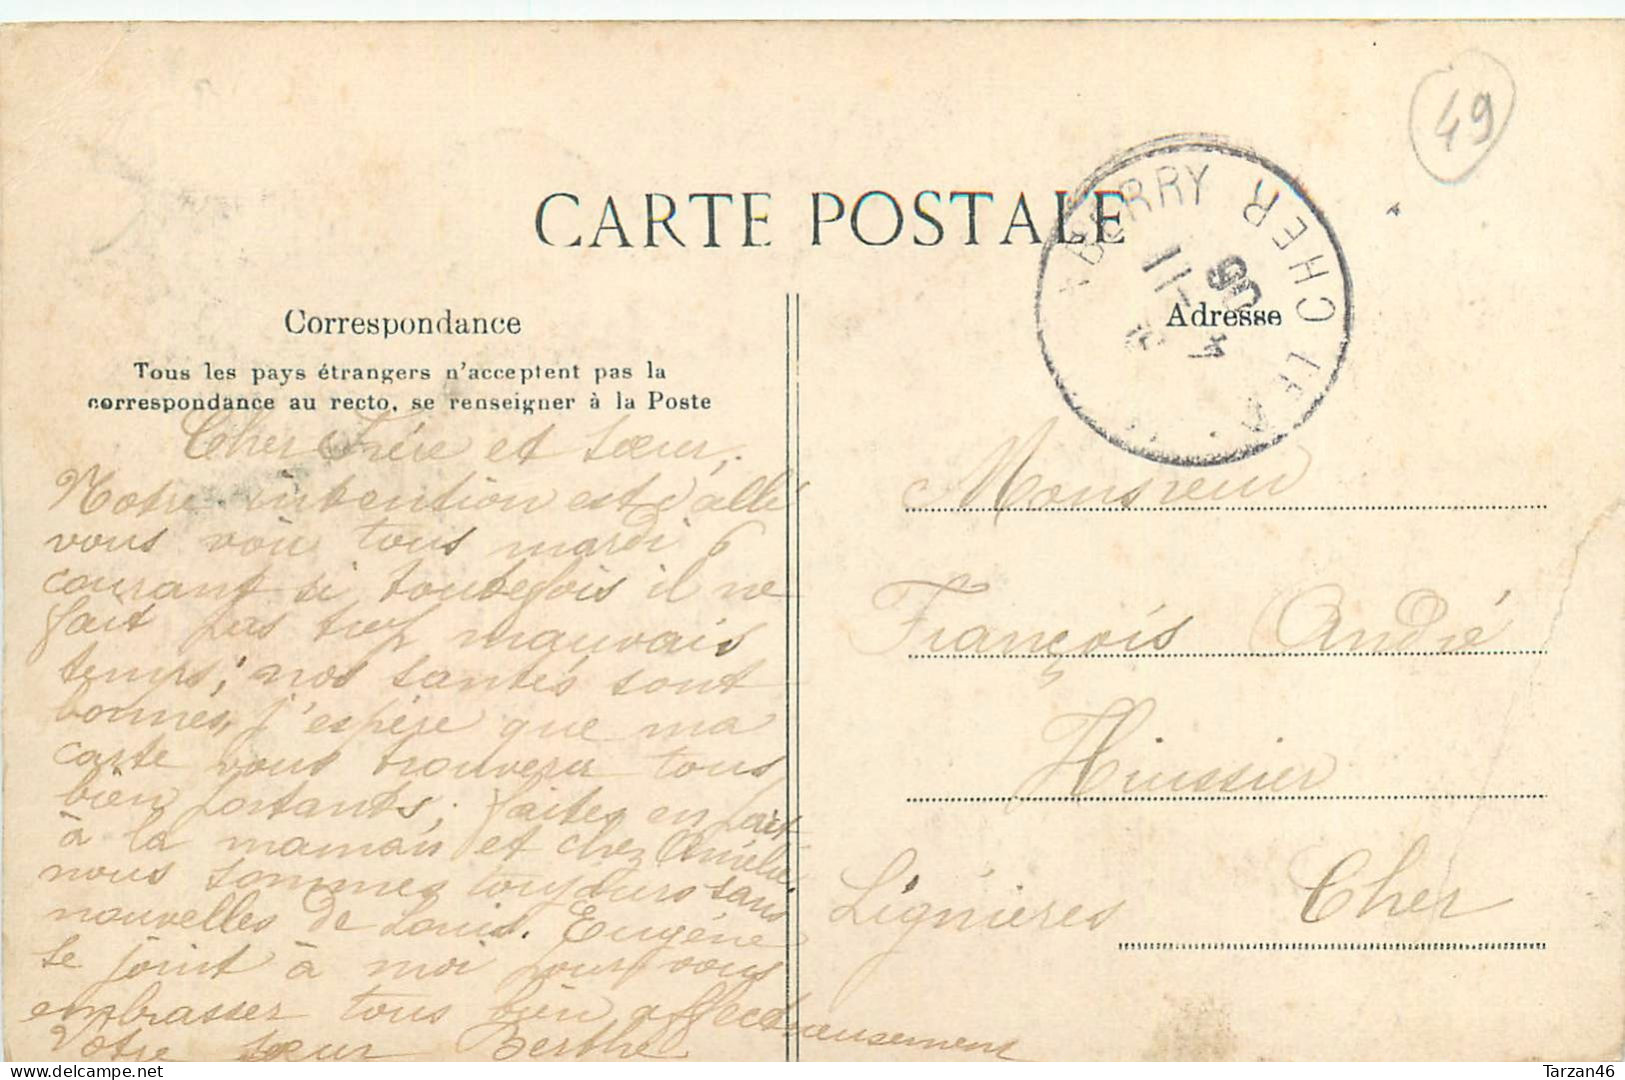 49
CARTE POSTALE
BERRY CHER
11
06
Correspondance
Adresse
Tous les pays étrangers n'acceptent pas la
correspondance au recto, se renseigner à la Poste
Cher Frére et sœur,
Notre intention est d'allé
vous voir tous mardi 6
courant si toutefois il ne
fait pas trop mauvais
temps; nos santés sont
bonnes, j'espère que ma
carte vous trouvera tous
bien portants; faites en part
à la maman et chez Amélie
nous sommes toujours sans
nouvelles de Louis. Eugéne
se joint à moi pour vous
embrasser tous bien affectueusement
Votre sœur Berthe
Monsieur
François André
Huissier
Lignieres Cher
Tarzan46